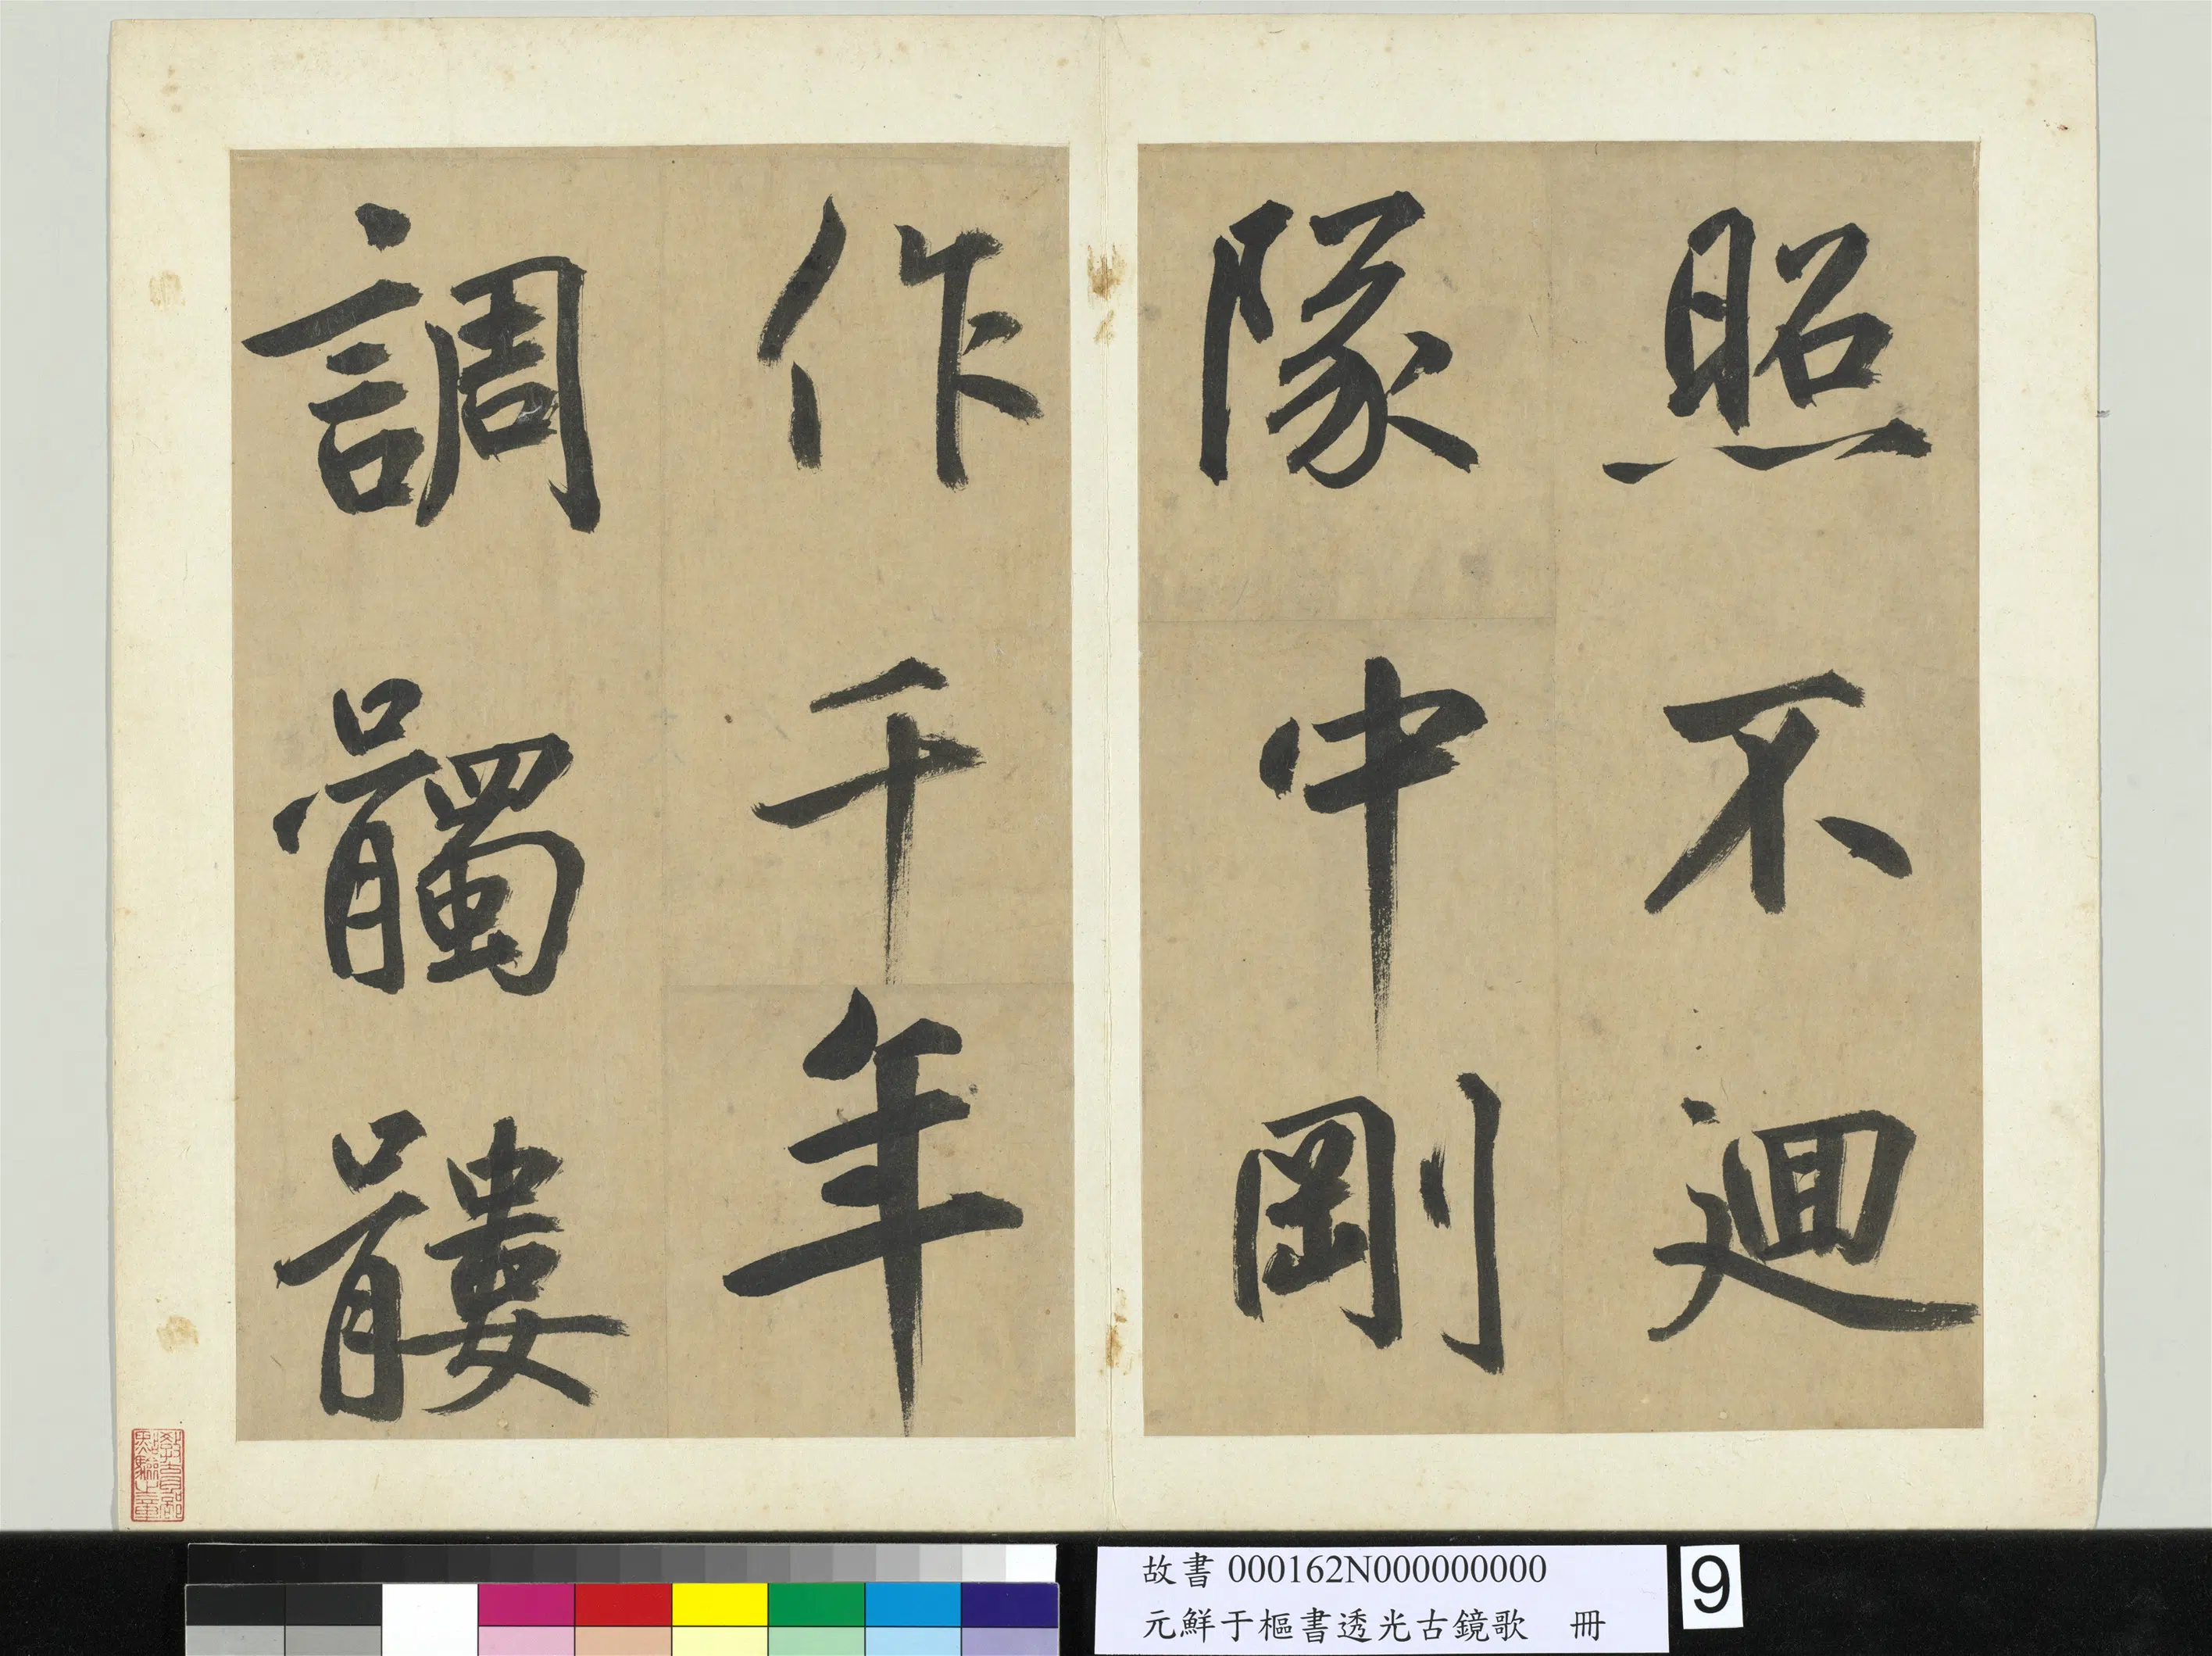 照不迴
隊中剛
作千年
調髑髏
教育部
點驗之章
故書 000162N000000000
元鮮于樞書透光古鏡歌 冊
9